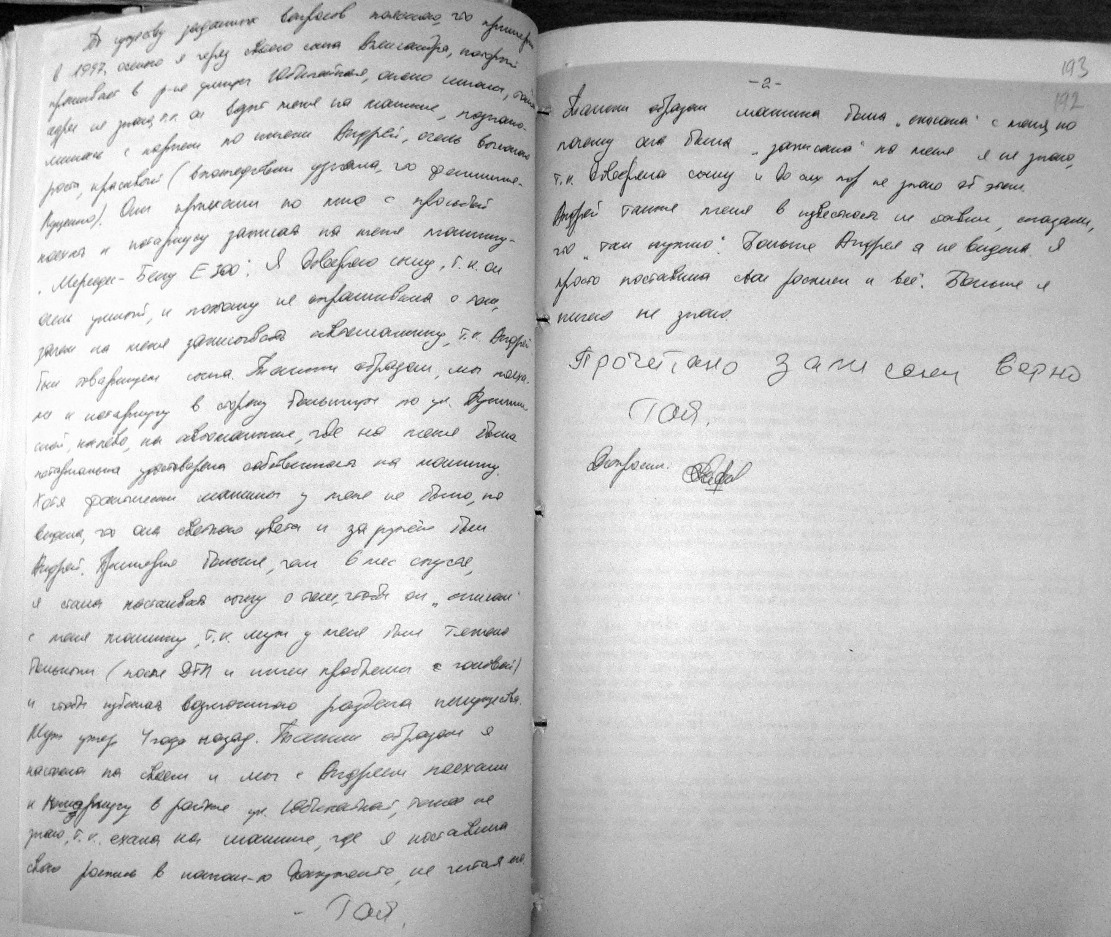 По существу заданных вопросов поясняю, что примерно
в 1997г. осенью я через своего сына Александра, который
проживает в р-не улицы Юбилейная, около школы, точно
адрес не знаю, т.к. он возит меня на машине, познако-
милась с парнем по имени Андрей, очень высокого
роста, красивый (впоследствии узнала, что фамилия -
). Они приехали ко мне с просьбой
поехать к нотариусу записать на меня машину -
"Мерседес-Бенц Е 200". Я доверяю сыну, т.к. он
очень умный, и поэтому не спрашивала о том,
зачем на меня записывать автомашину, т.к. Андрей
был товарищем сына. Таким образом, мы поеха-
ли к нотариусу в сторону больницы по ул.
налево, на автомашине, где на меня была
нотариально удостоверена собственность на машину.
Хотя фактически машины у меня не было, но
видела, что она светлого цвета и за рулём был
Андрей. Примерно больше, чем 6 мес спустя,
я стала настаивать сыну о том, чтобы он "списал"
с меня машину, т.к. муж у меня был тяжело
больным (после ДТП и имел проблемы с головой)
и чтобы избежать возможного раздела имущества.
Муж умер 4 года назад. Таким образом я
настояла на своём и мы с Андреем поехали
к нотариусу в районе ул. Юбилейной, точно не
знаю, т.к. ехала на машине, где я поставила
свою роспись в каком-то документе, не читая его.
- Той.
193
192
-2-
Таким образом машина была "списана" с меня, но
почему она была "записана" на меня я не знаю,
т.к. доверяла сыну и до сих пор не знаю об этом.
Андрей также меня в известность не ставил, сказали,
что "так нужно". Больше Андрея я не видела. Я
просто поставила свои росписи и всё. Больше я
ничего не знаю
Прочетано записанс верно
Той.
Допросил: